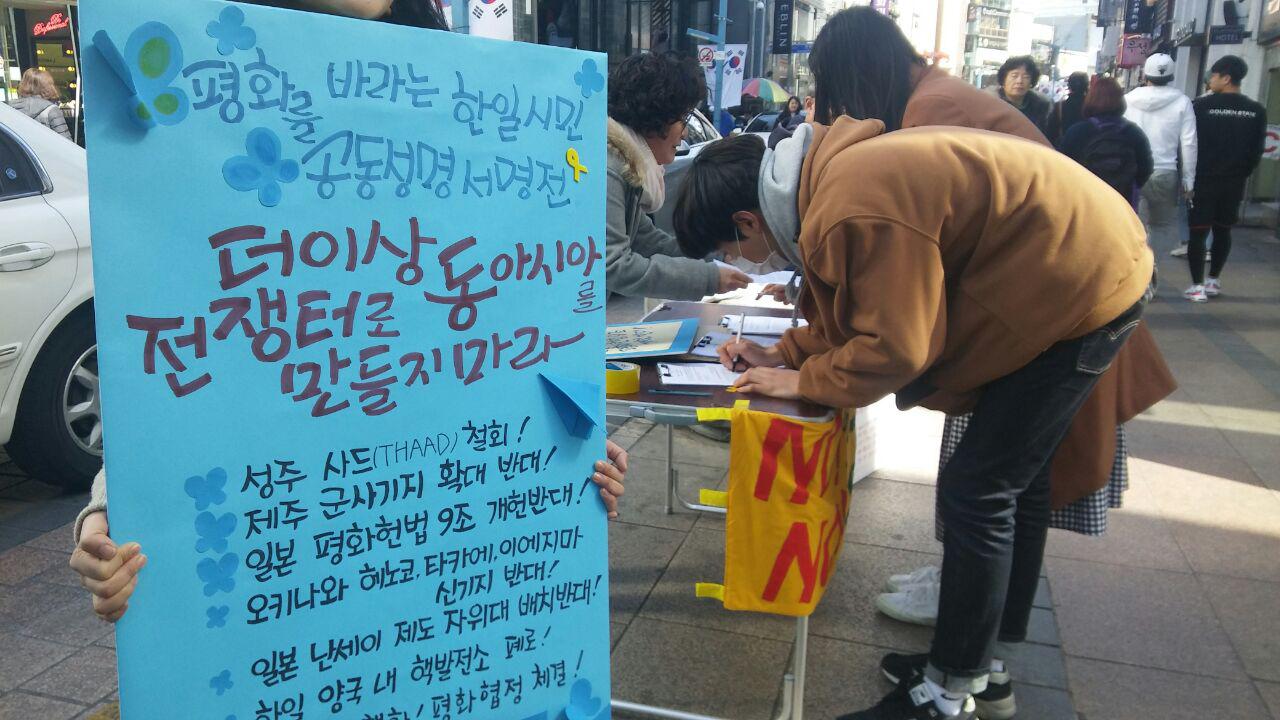 평화를 바라는 한일시민
공동성명 서명전
더이상 동아시아를
전쟁터로
만들지마라
성주 사드(THAAD) 철회!
제주 군사기지 확대 반대!
일본 평화헌법 9조 개헌반대!
오키나와 헤노코, 타카에, 이에지마
신기지 반대!
일본 난세이 제도 자위대 배치반대!
한일 양국 내 핵발전소 폐로!
평화협정 체결!
NO
NO
GOLDEN STATE
HOTEL